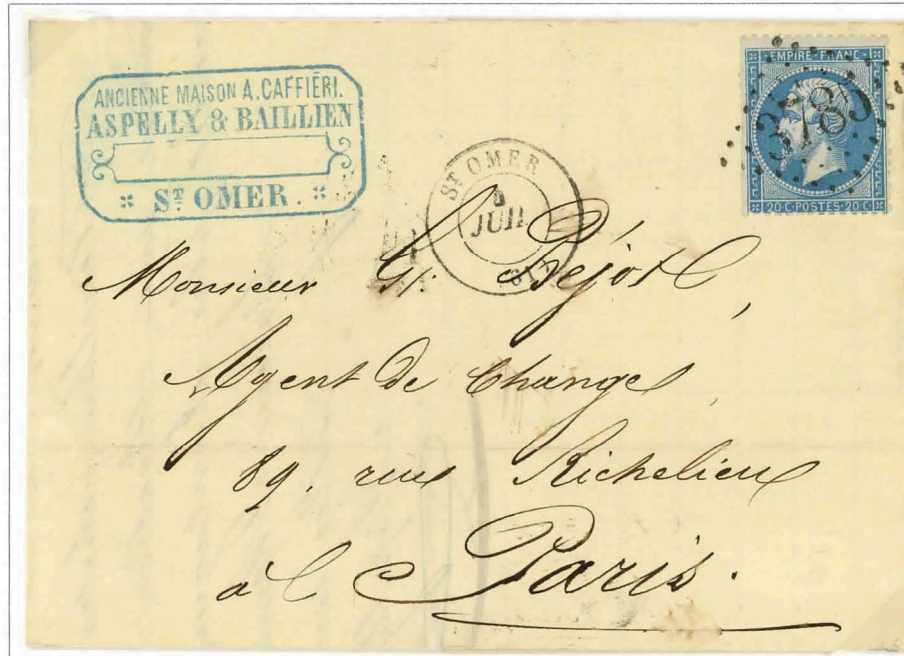 ANCIENNE MAISON A. CAFFIÉRI.
ASPELLY & BAILLIEN
ST OMER.
EMPIRE · FRANC
3785
20 C · POSTES · 20 C
ST OMER
5
JUIL
Monsieur G. Béjot,
Agent de Change,
89. rue Richelieu
à Paris.